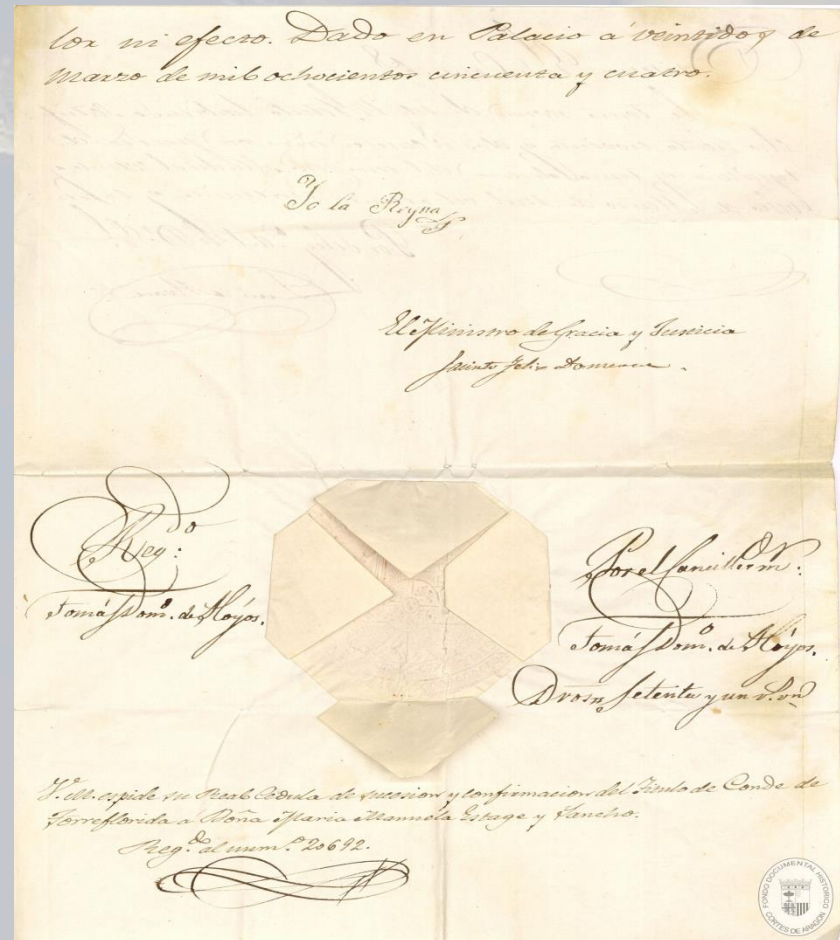 lor ni efecto. Dado en Palacio á veintidos de
Marzo de mil ochocientos cincuenta y cuatro.
Yo la Reyna
El Ministro de Gracia y Justicia
Jacinto Felix Domenech.
Reg.do:
Tomás Dom.o de Hoyos.
Por el Canciller m.r:
Tomás Dom.o de Hoyos.
Dros setenta y un r.s von
V.M. espide su Real Cédula de sucesion y confirmacion del Titulo de Conde de
Torreflorida a Doña Maria Manuela Estage y Sancho.
Reg.do al num.o 20692.
FONDO DOCUMENTAL HISTÓRICO
CORTES DE ARAGÓN